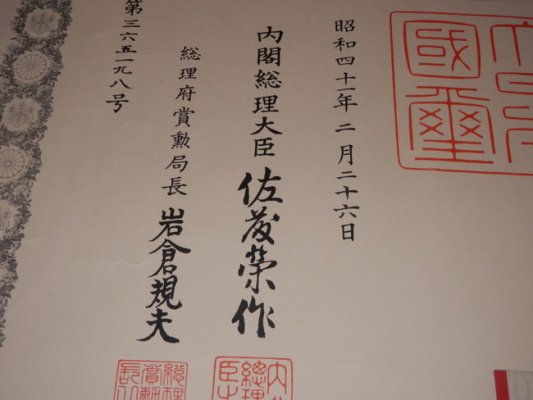 昭和四十一年二月二十六日
内閣総理大臣 佐藤榮作
総理府賞勲局長 岩倉規夫
第三六五一九八号
國璽